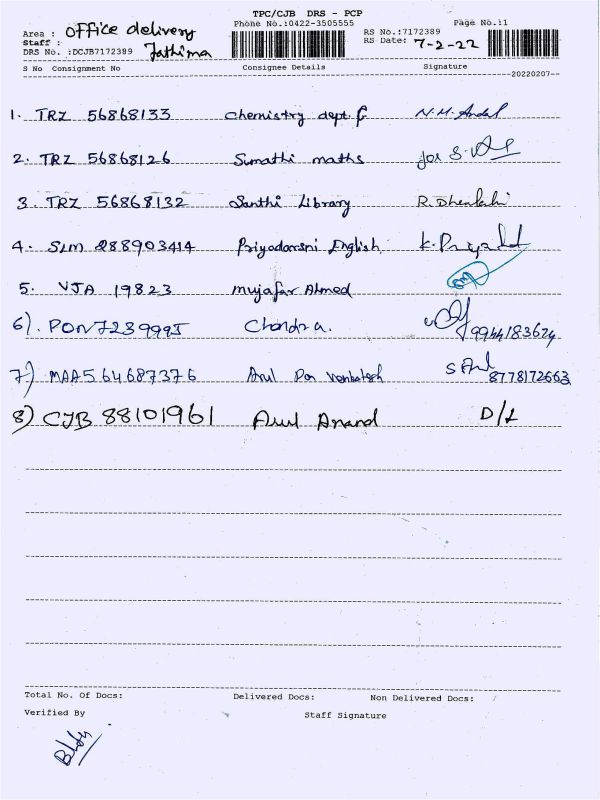 TPC/CJB DRS - PCP
Phone No.:0422-3505555
Page No.:1
Area : Office delivery
Staff : Fathima
DRS No. :DCJB7172389
RS No.:7172389
RS Date: 7-2-22
S No Consignment No Consignee Details Signature
20220207
1. TRZ 56868133 Chemistry dept. N.M. Andal
2. TRZ 56868126 Sumathi maths for S.
3. TRZ 56868132 Santhi Library R. Dhenlahi
4. SLM 288903414 Priyadarsni English K. Priya
5. VJA 19823 Mujafar Ahmed
6). PON723999 Chandra. 9944183624
7) MAA564687376 Arul Pon Venkatesh S Arul 8778172663
8) CJB 88101961 Arul Anand D/L
Total No. Of Docs: Delivered Docs: Non Delivered Docs:
Verified By Staff Signature